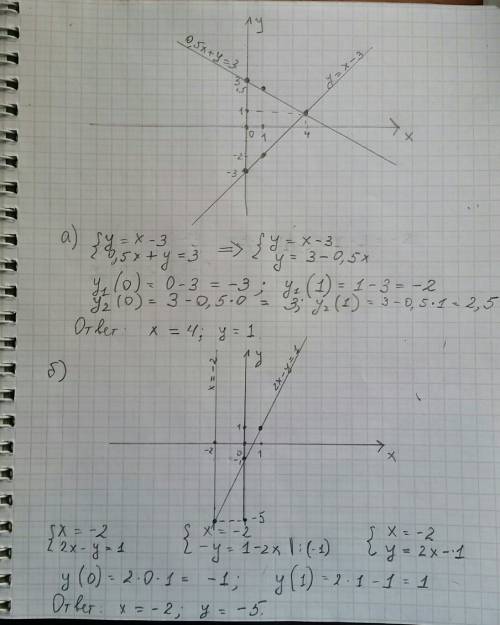 y
0,5x+y=3
y=x-3
3
2,5
1
x
0 1 4
-2
-3
а) { y = x-3 => { y = x-3
{ 0,5x + y = 3 { y = 3-0,5x
y₁(0) = 0-3 = -3; y₁(1) = 1-3 = -2
y₂(0) = 3-0,5·0 = 3; y₂(1) = 3-0,5·1 = 2,5
Ответ: x = 4; y = 1.
б)
x=-2
y
2x-y=1
1
-2 1 x
0
-5
{ x = -2 { x = -2 { x = -2
{ 2x-y=1 { -y = 1-2x ||:(-1) { y = 2x-1
y(0) = 2·0·1 = -1; y(1) = 2·1-1 = 1
Ответ: x = -2; y = -5.